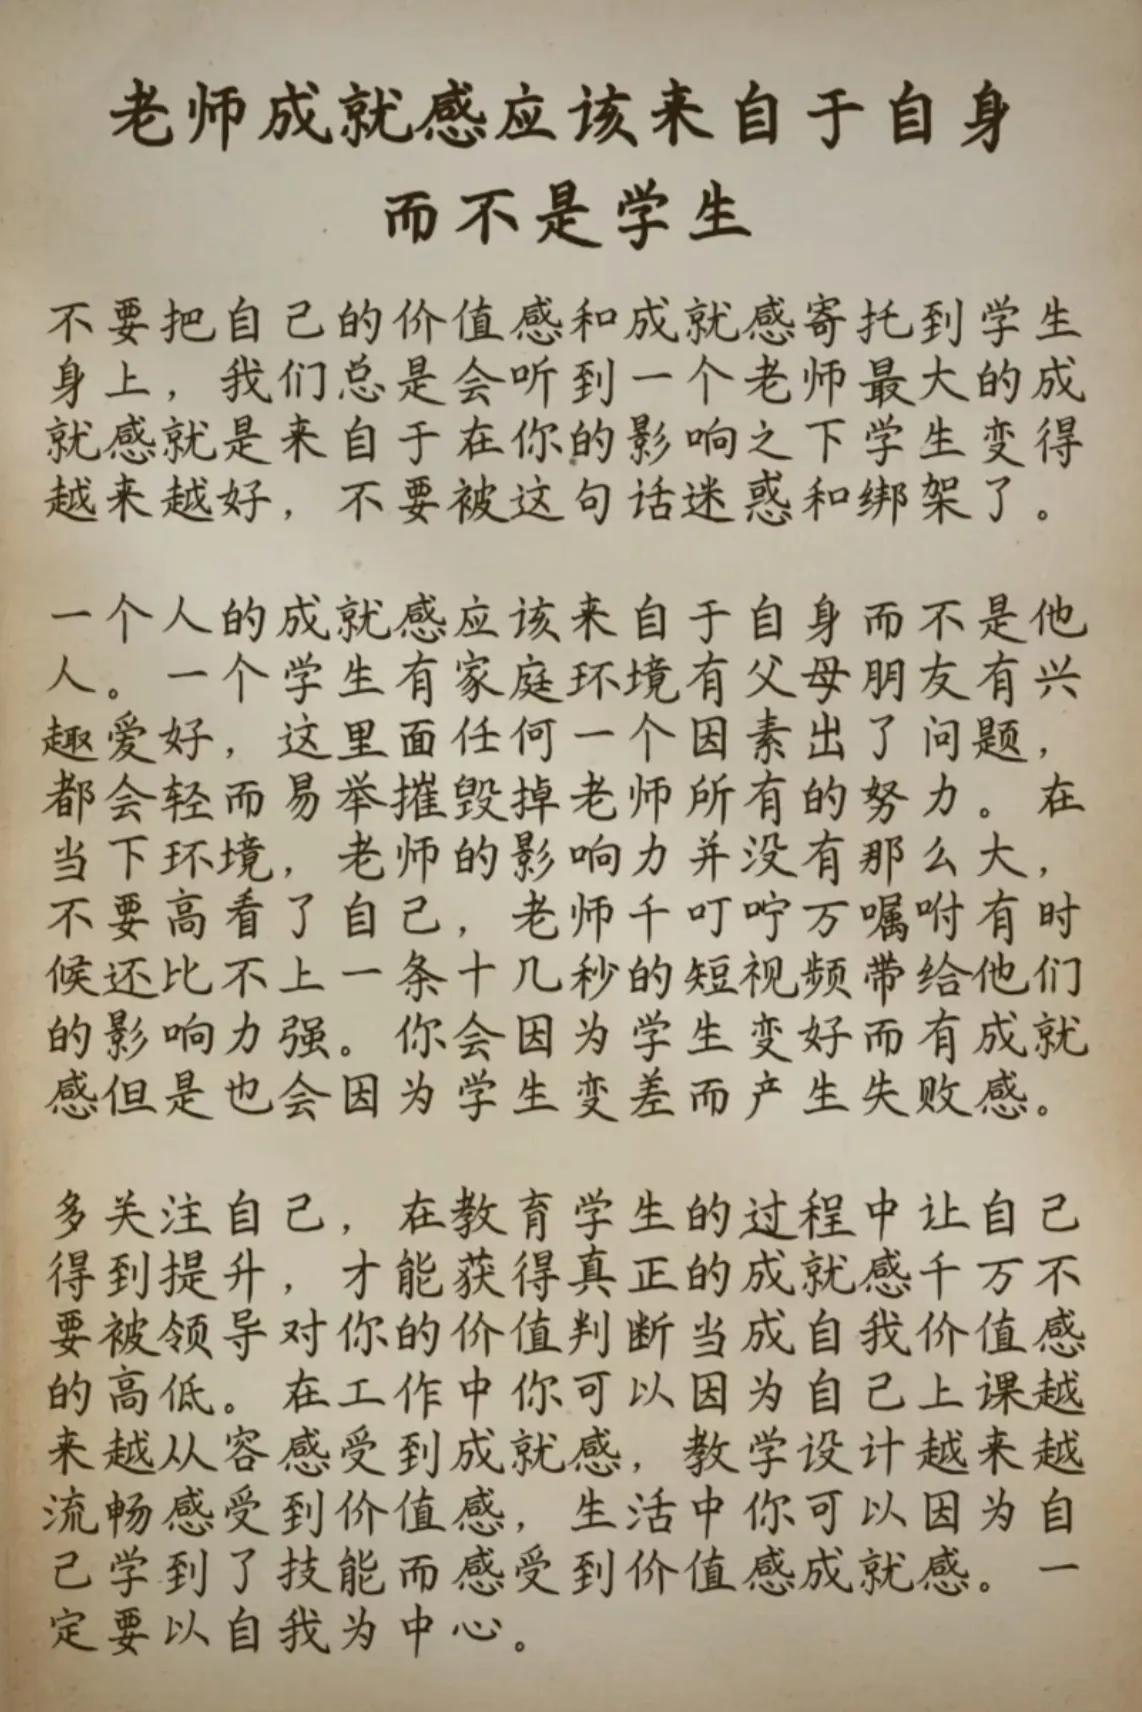 老师成就感应该来自于自身
而不是学生
不要把自己的价值感和成就感寄托到学生
身上，我们总是会听到一个老师最大的成
就感就是来自于在你的影响之下学生变得
越来越好，不要被这句话迷惑和绑架了。
一个人的成就感应该来自于自身而不是他
人。一个学生有家庭环境有父母朋友有兴
趣爱好，这里面任何一个因素出了问题，
都会轻而易举摧毁掉老师所有的努力。在
当下环境，老师的影响力并没有那么大，
不要高看了自己，老师千叮咛万嘱咐有时
候还比不上一条十几秒的短视频带给他们
的影响力强。你会因为学生变好而有成就
感但是也会因为学生变差而产生失败感。
多关注自己，在教育学生的过程中让自己
得到提升，才能获得真正的成就感千万不
要被领导对你的价值判断当成自我价值感
的高低。在工作中你可以因为自己上课越
来越从容感受到成就感，教学设计越来越
流畅感受到价值感，生活中你可以因为自
己学到了技能而感受到价值感成就感。一
定要以自我为中心。